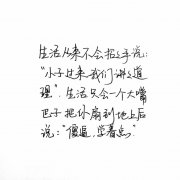 生活从来不会招之手说：
“小子过来我们讲讲道
理”，生活只会一个大嘴
巴子把你扇到地上后
说：“傻逼，学着点”